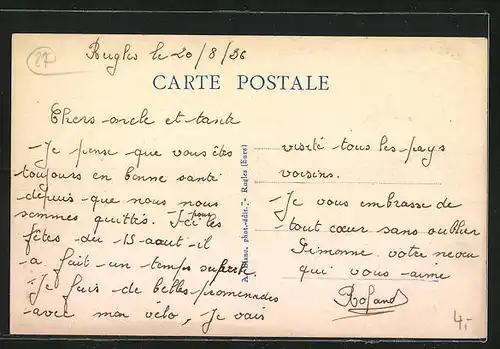 27
Rugles le 20/8/36
CARTE POSTALE
Chers oncle et tante
-Je pense que vous êtes
toujours en bonne santé
depuis que nous nous
sommes quittés. Ici pour les
fêtes du 15 août il
a fait un temps superbe.
-Je fais de belles promenades
avec mon vélo, Je vais
phot.-édit. - Rugles (Eure)
visité tous les pays
voisins.
-Je vous embrasse de
tout cœur sans oublier
Simonne votre neveu
qui vous aime
Roland
4.-